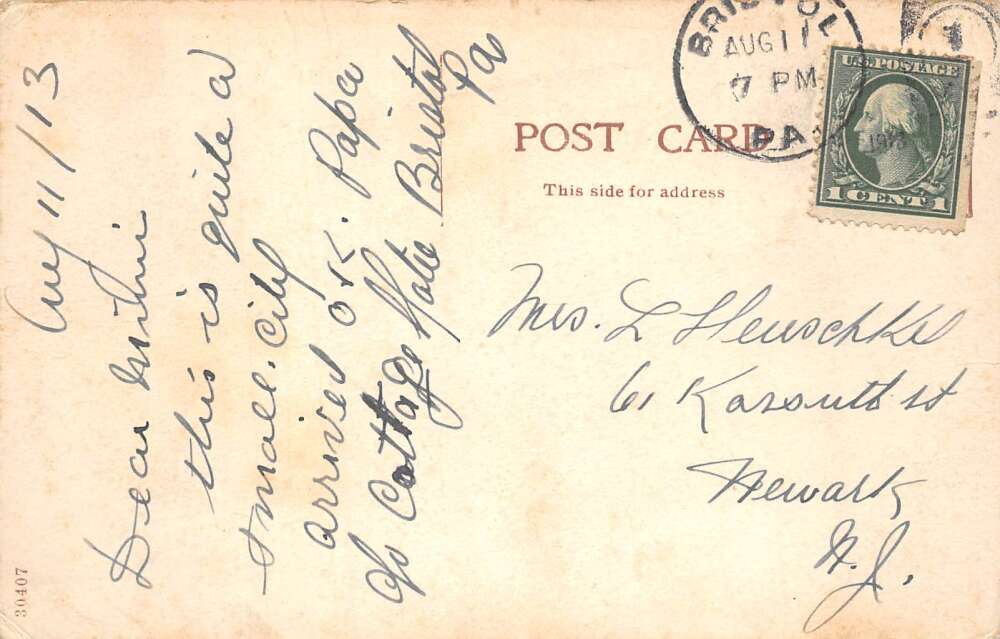 Aug 11/13
Dear Mimi
this is quite a
small. City
arrived O.K. Papa
c/o Cottage Hotel Bristol
Pa
BRISTOL
AUG 11
7 PM
PA
1913
U.S. POSTAGE
1 CENT 1
POST CARD
This side for address
Mrs. L Heuschkel
61 Kossuth st
Newark
N.J.
30407